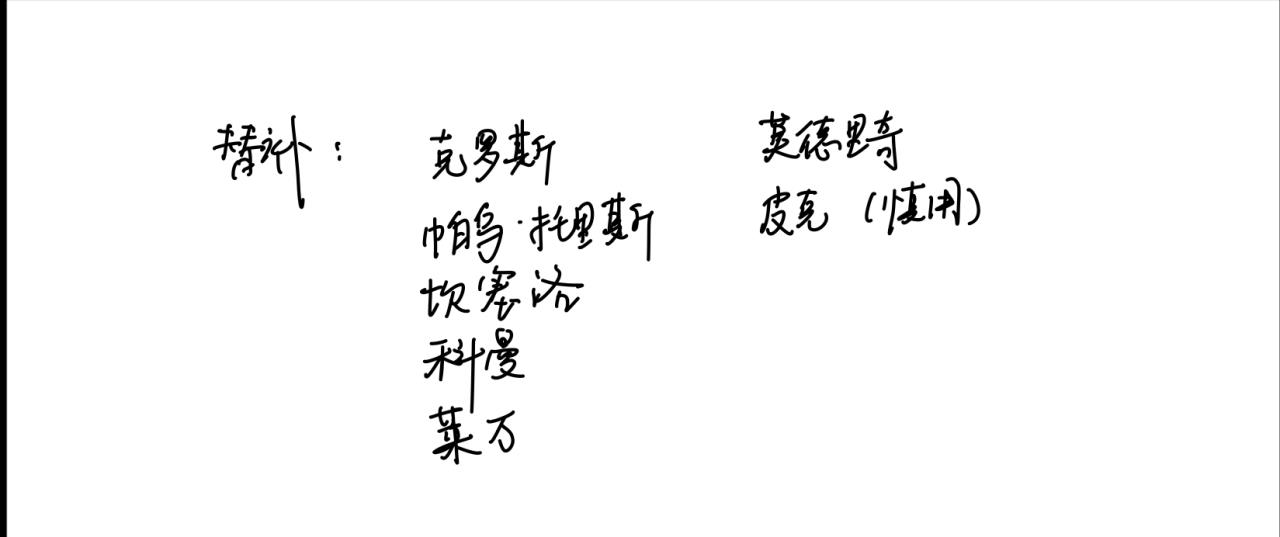 替补： 克罗斯 莫德里奇
帕乌·托里斯 皮克（慎用）
坎塞洛
科曼
莱万